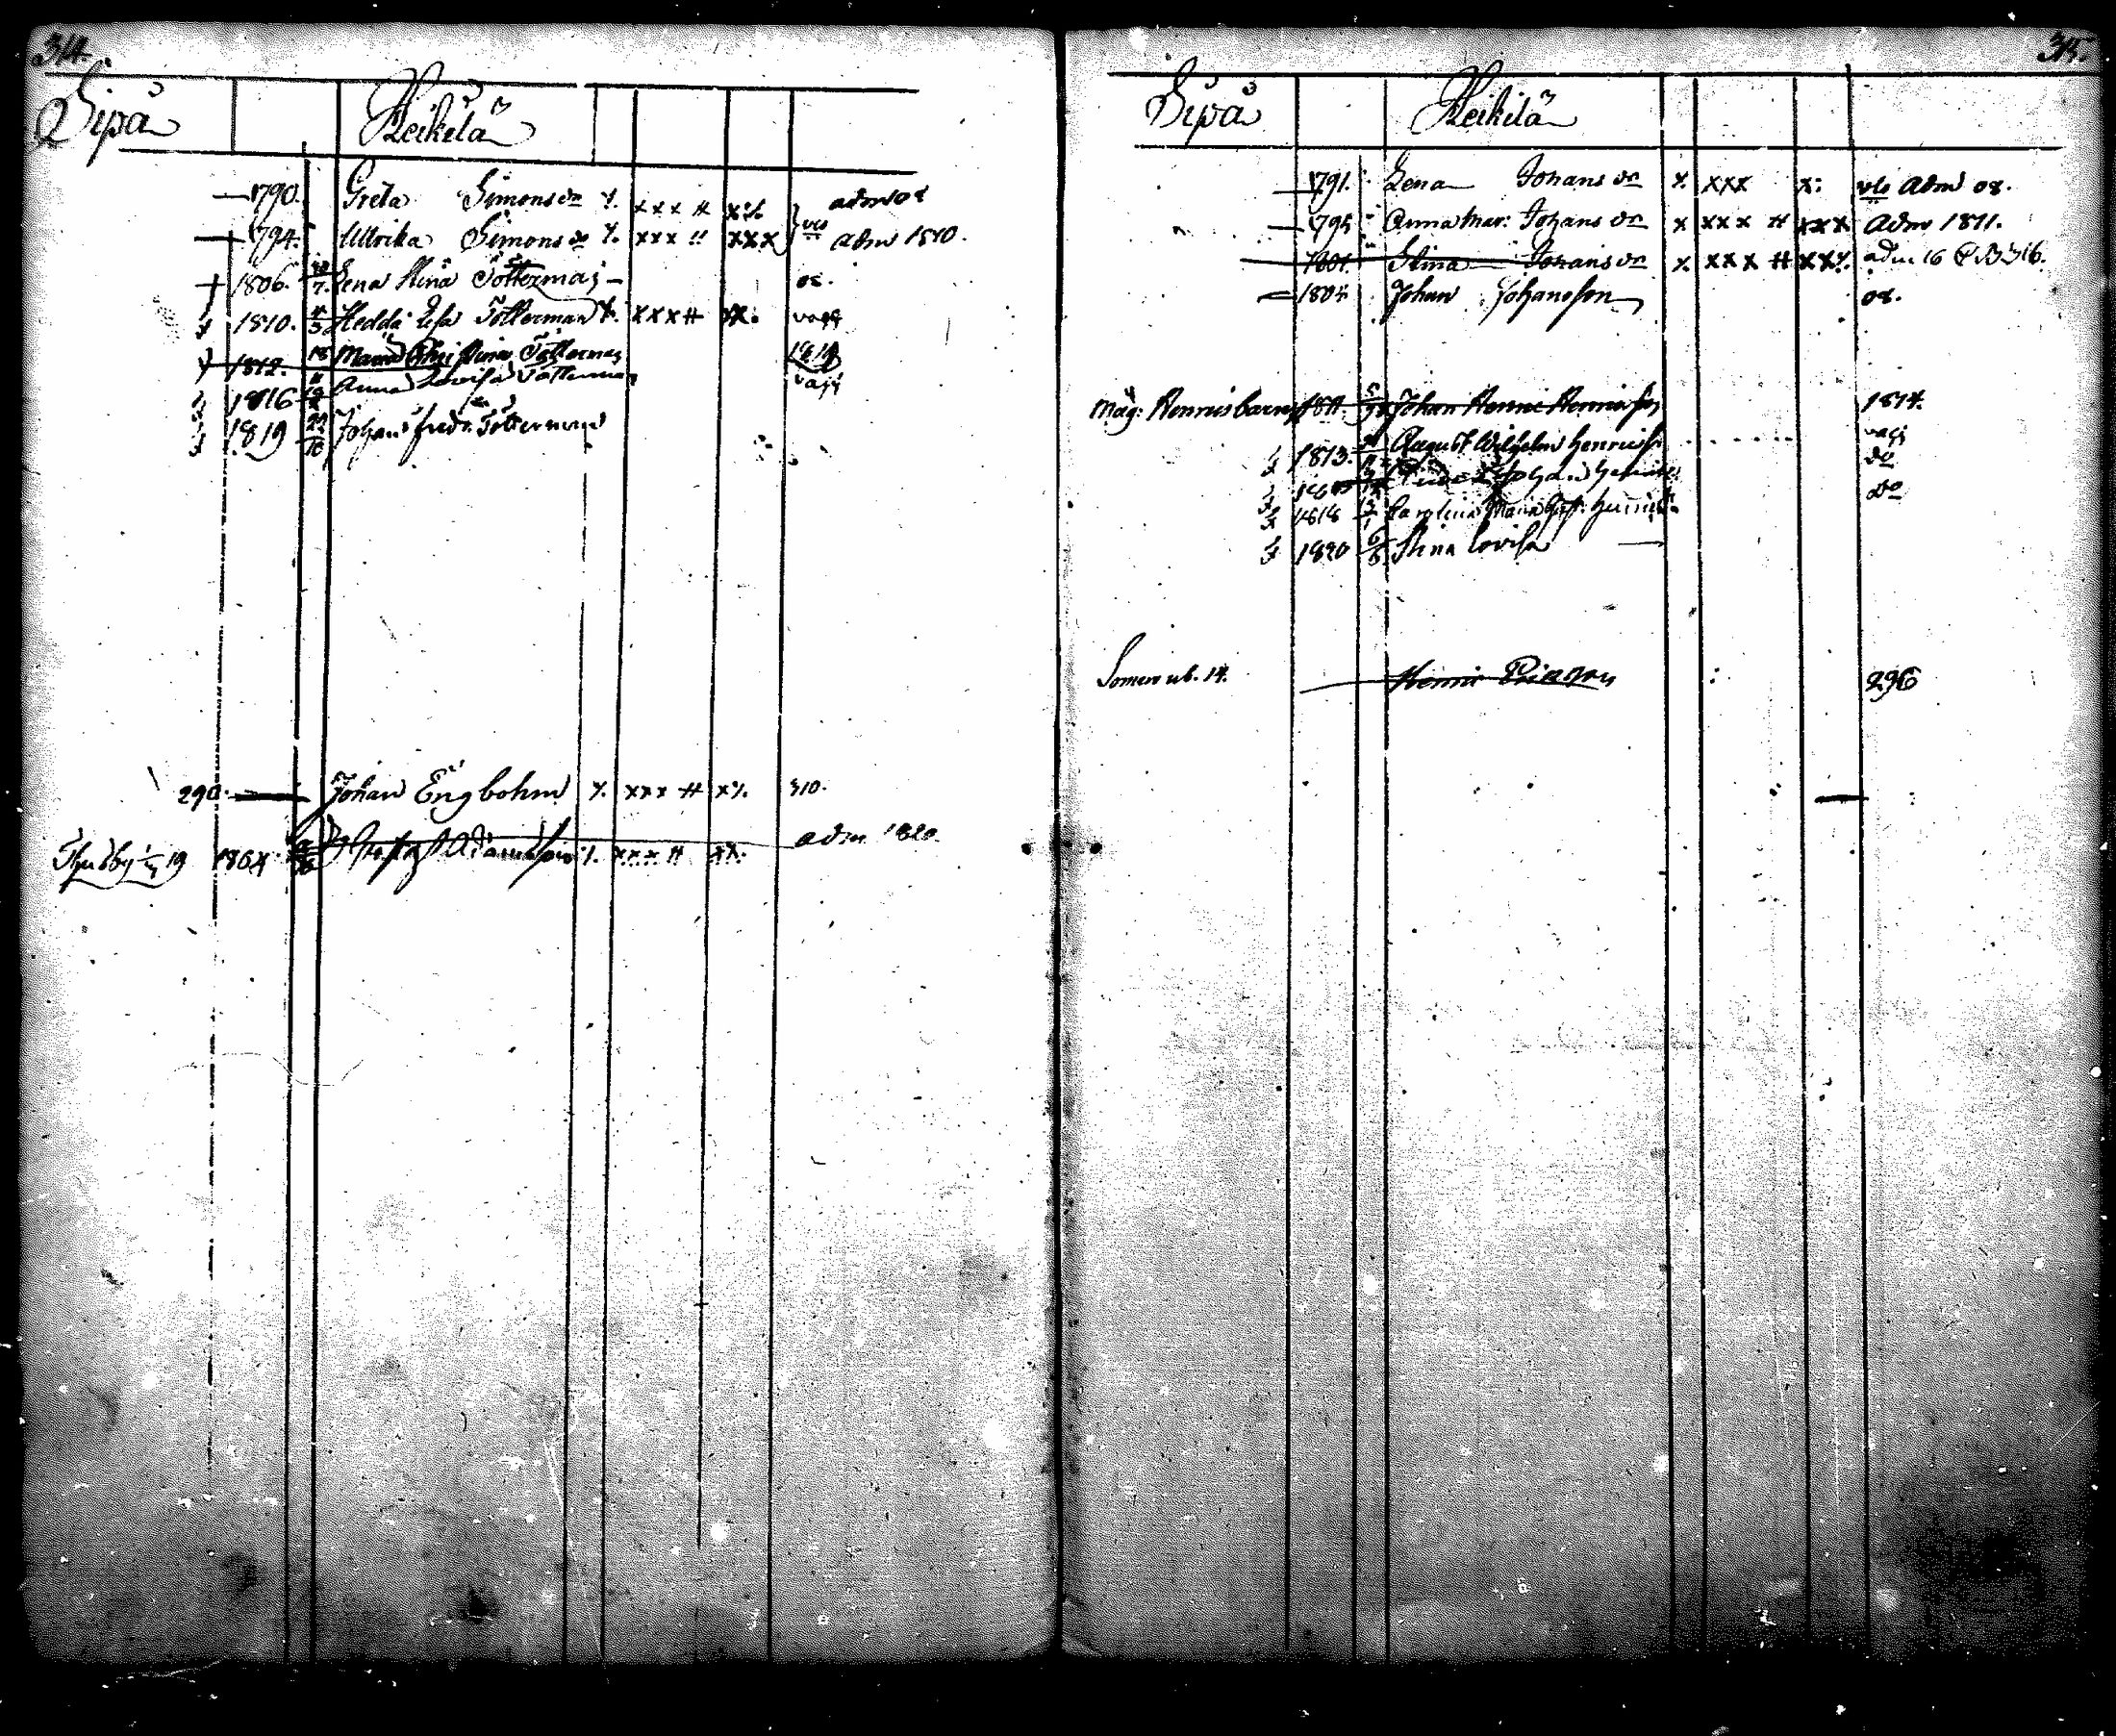 314.
Sipå Heikilä
1790. Greta Simons dr x. xxx # x%. adm 08
1794. Ullrika Simons dr x. xxx !! xxx adm 1810.
1806. Lena Stina Tötterman 08.
1810. Hedda Lisa Tötterman x. xxx# xx. vagg
1812. Maria Christina Tötterman 1814
1816 Anna Lovisa Tötterman vagg
1819 Johan Fredr. Tötterman
290. Johan Engbohm x. xxx # x%. 310.
19 Gustaf Adamsson x. xxx # xx. adm 1820.
315.
Sipå Heikilä
1791. Lena Johans dr x. xxx x: adm 08.
1795 Anna Mar: Johans dr x xxx # xxx adm 1811.
1801. Stina Johans dr x. xxx # xx%. adm 16 316.
1804 Johan Johansson 08.
Måg: Henriks barn 1811. Johan Henric Henricsson 1814.
1813. August Wilhelm Henricss vagg
Johan do
1818 Carolina Maria do
1820 6/6 Stina Lovisa
Somero ub. 14. Henric 296